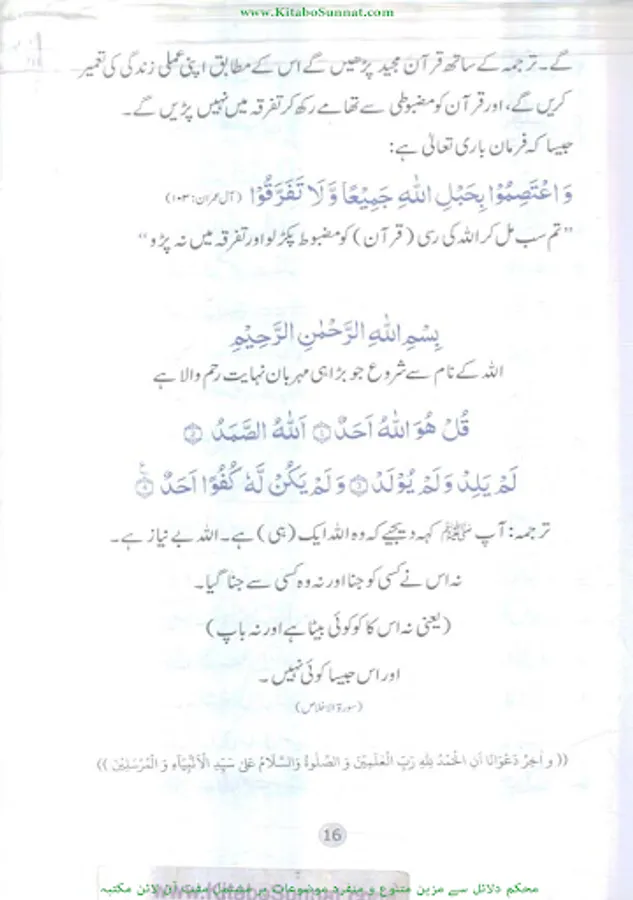 www.KitaboSunnat.com
گے۔ ترجمہ کے ساتھ قرآن مجید پڑھیں گے اس کے مطابق اپنی عملی زندگی کی تعمیر
کریں گے، اور قرآن کو مضبوطی سے تھامے رکھ کر تفرقہ میں نہیں پڑیں گے۔
جیسا کہ فرمان باری تعالیٰ ہے:
وَاعْتَصِمُوْا بِحَبْلِ اللّٰهِ جَمِيْعًا وَّلَا تَفَرَّقُوْا (آل عمران: ۱۰۳)
”تم سب مل کر اللہ کی رسی (قرآن) کو مضبوط پکڑ لو اور تفرقہ میں نہ پڑو“
بِسْمِ اللّٰهِ الرَّحْمٰنِ الرَّحِيْمِ
اللہ کے نام سے شروع جو بڑا ہی مہربان نہایت رحم والا ہے
قُلْ هُوَ اللّٰهُ اَحَدٌ ۝۱ اَللّٰهُ الصَّمَدُ ۝۲
لَمْ يَلِدْ وَلَمْ يُوْلَدْ ۝۳ وَلَمْ يَكُنْ لَّهٗ كُفُوًا اَحَدٌ ۝۴ۧ
ترجمہ: آپ ﷺ کہہ دیجیے کہ وہ اللہ ایک (ہی) ہے۔ اللہ بے نیاز ہے۔
نہ اس نے کسی کو جنا اور نہ وہ کسی سے جنا گیا۔
(یعنی نہ اس کا کو کوئی بیٹا ہے اور نہ باپ)
اور اس جیسا کوئی نہیں۔
(سورة الاخلاص)
((وَ اٰخِرُ دَعْوَانَا اَنِ الْحَمْدُ لِلّٰهِ رَبِّ الْعٰلَمِيْنَ وَ الصَّلٰوةُ وَالسَّلَامُ عَلٰى سَيِّدِ الْاَنْبِيَآءِ وَ الْمُرْسَلِيْنَ))
16
محکم دلائل سے مزین متنوع و منفرد موضوعات پر مشتمل مفت آن لائن مکتبہ
www.KitaboSunnat.com